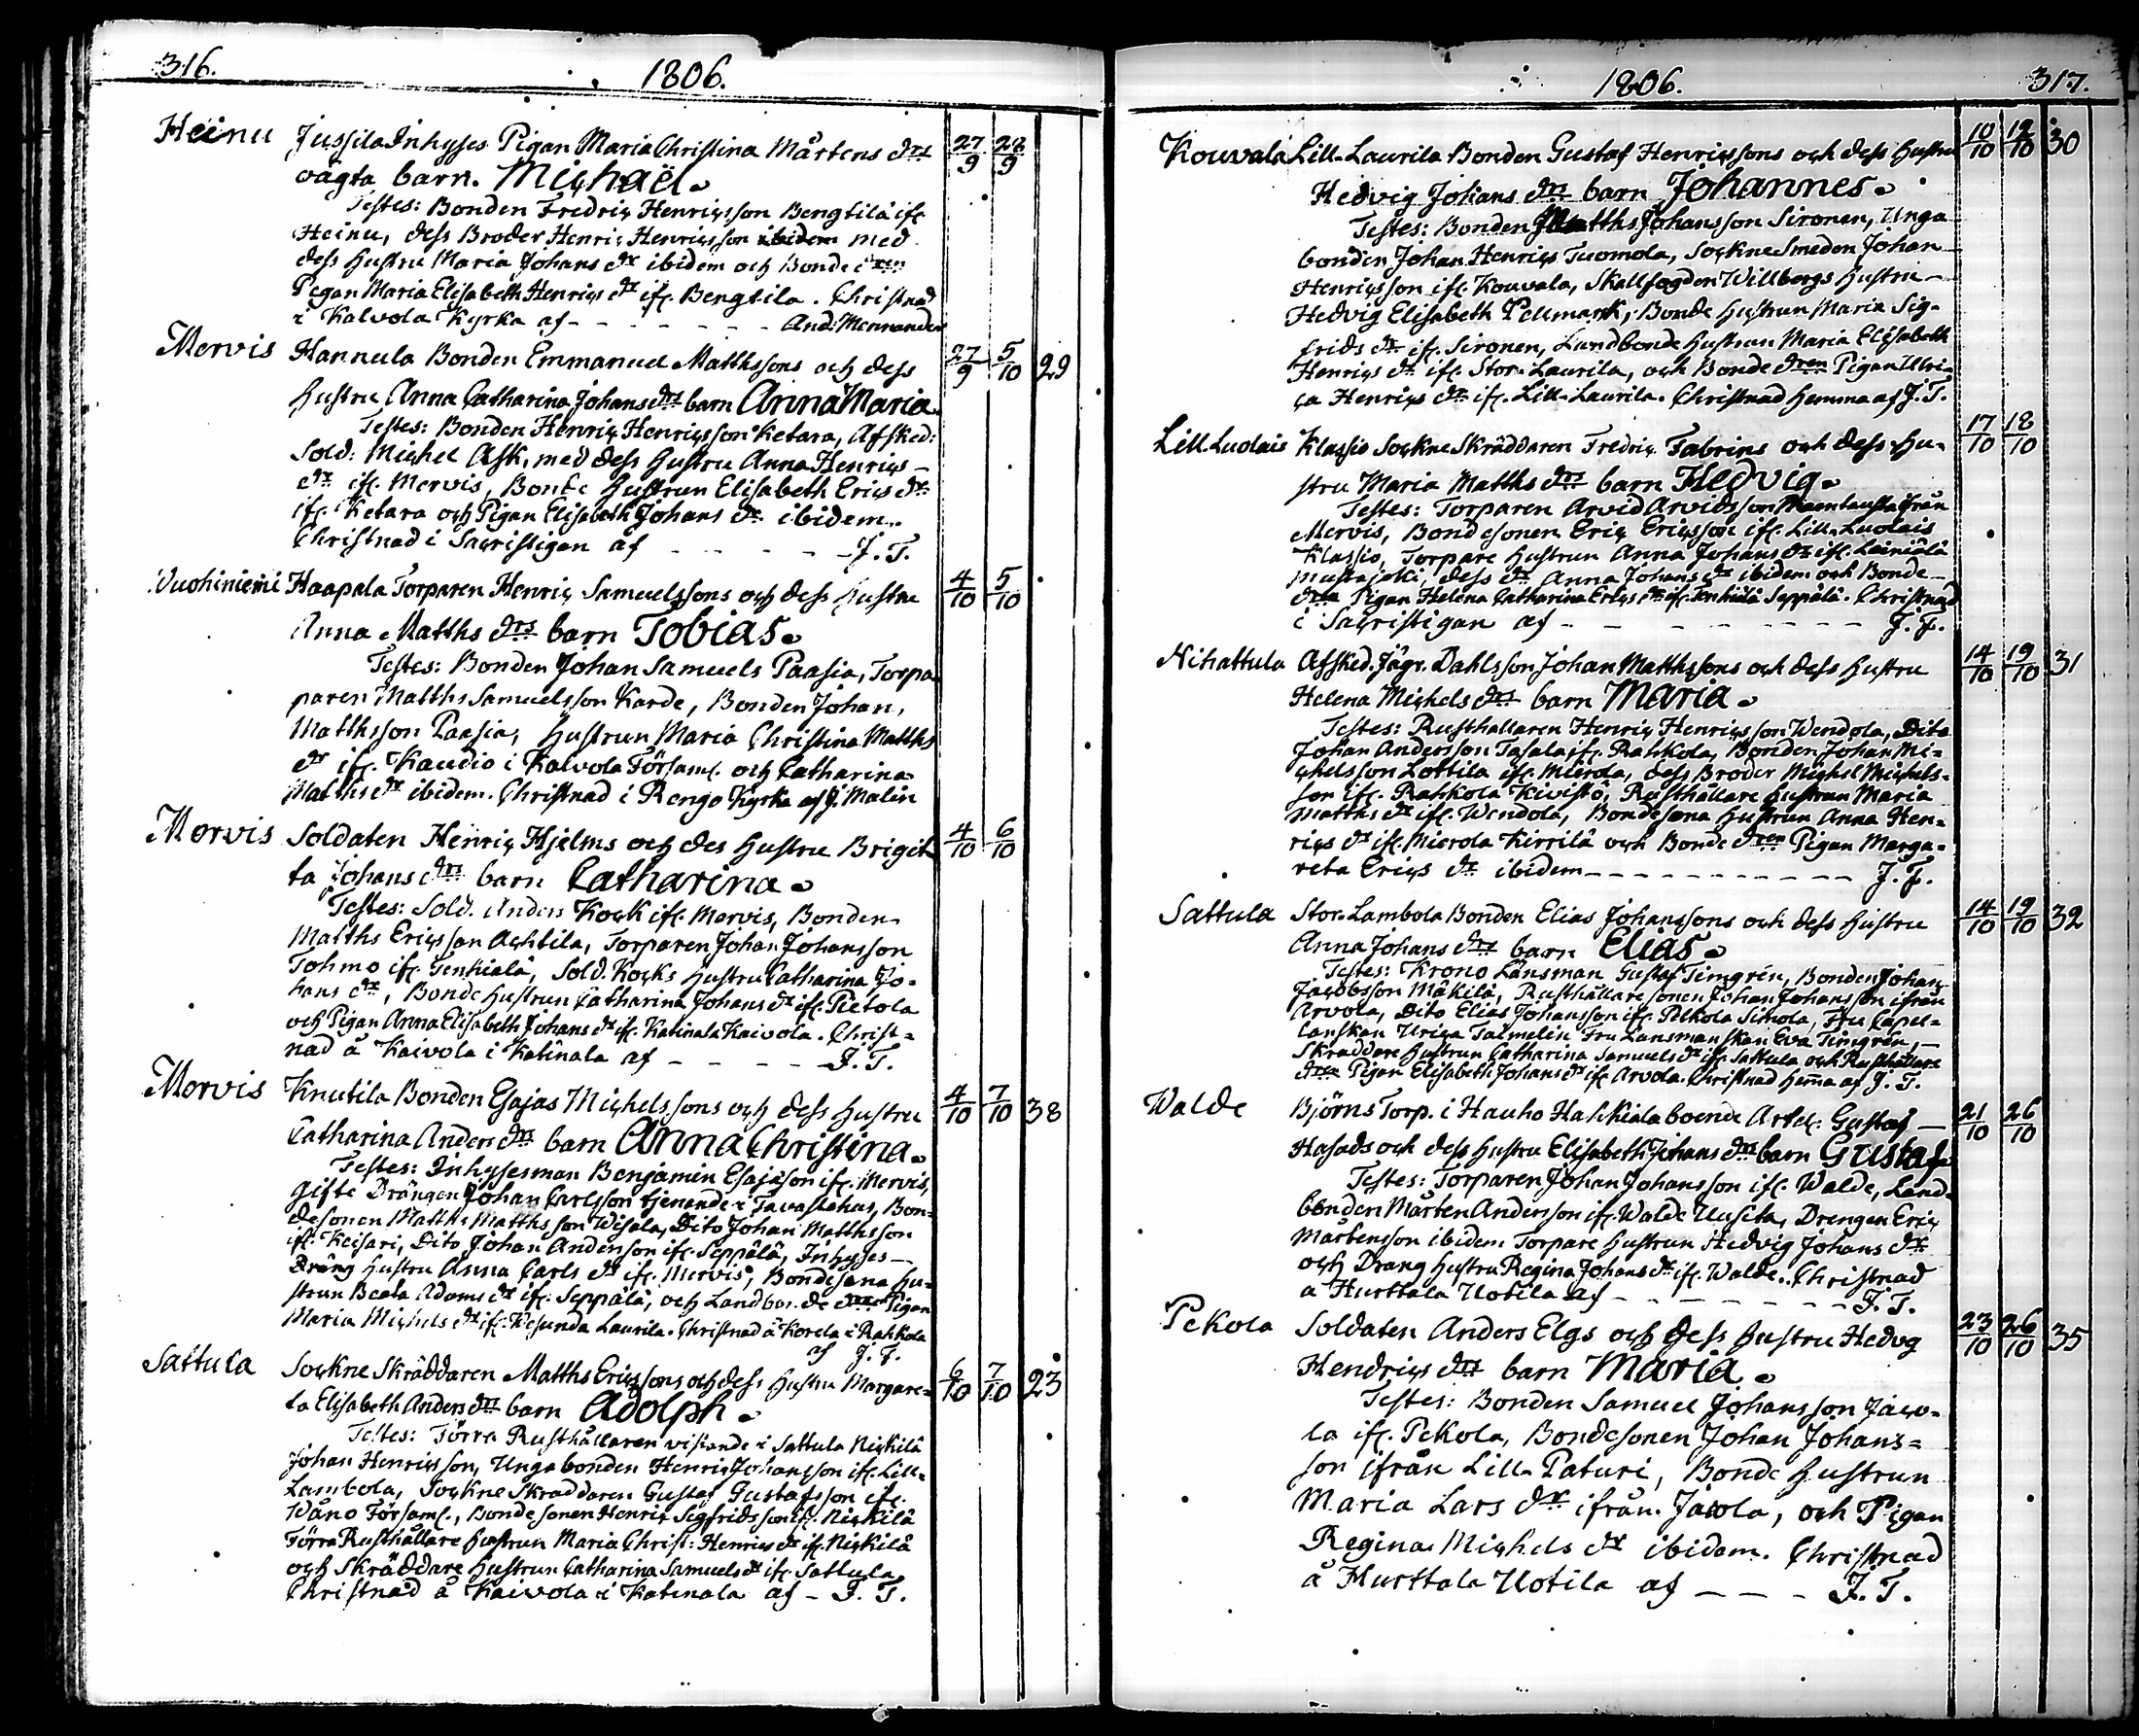 316.
1806.
Heinu Jussila Inhyses Pigan Maria Christina Mårtens drs 27/9 28/9
oägta barn. Michaël.
Testes: Bonden Fredric Henricsson Bengtilä ifr.
Heinu, dess Broder Henric Henricsson ibidem med
dess hustru Maria Johans dr ibidem och Bonde dren
Pigan Maria Elisabeth Henrics dr ifr. Bengtila. Christnad
i Kalvola Kyrka af - - - - - - - And: Mennander
Mervis Hannula Bonden Emmanuel Matthssons och dess 27/9 5/10 29
hustru Anna Catharina Johans drs barn Anna Maria.
Testes: Bonden Henric Henricsson Ketara, Afsked:
Sold: Michel Ask, med dess hustru Anna Henrics-
dr ifr. Mervis, Bonde hustrun Elisabeth Erics dr
ifr. Ketara och Pigan Elisabeth Johans dr ibidem.
Christnad i Sacristigan af - - - - - J. T.
Vuohiniemi Haapala Torparen Henric Samuelssons och dess hustru 4/10 5/10
Anna Matths drs barn Tobias.
Testes: Bonden Johan Samuels Paasia, Torpa
paren Matths Samuelsson Karde, Bonden Johan
Matthsson Paasia, hustrun Maria Christina Matths
dr ifr. Kaudio i Kalvola Församl. och Catharina
Matths dr ibidem. Christnad i Rengo Kyrka af J. Malin
Mervis Soldaten Henric Hjelms och des hustru Brigit 4/10 6/10
ta Johans drs barn Catharina.
Testes: Sold. Anders Kock ifr. Mervis, Bonden
Matths Ericsson Achtila, Torparen Johan Johansson
Tohmo ifr. Tenhiala, Sold. Kocks hustru Catharina Jo=
hans dr, Bonde hustrun Catharina Johans dr ifr. Pietola
och Pigan Anna Elisabeth Johans dr ifr. Katinala Kaivola. Christ=
nad å Kaivola i Katinala af - - - - - J. T.
Mervis Knutila Bonden Esajas Michelssons och dess hustru 4/10 7/10 38
Catharina Anders drs barn Anna Christina.
Testes: Inhysesman Benjamin Esajsson ifr. Mervis,
gifte Drängen Johan Carlsson tjenande i Tavastehus, Bon=
desonen Matths Matthsson Wisala, Dito Johan Matthsson
ifr. Keisari, Dito Johan Andersson ifr. Seppälä, Inhyses-
Dräng hustru Anna Carls dr ifr. Mervis, Bondesona hu=
strun Beata Adams dr ifr. Seppälä, och Landbon de dren Pigan
Maria Michels dr ifr. Wesunda Laurila. Christnad å Korela i Rahkola
af J. T.
Sattula Sockne Skräddaren Matths Ericssons och dess hustru Margare= 6/10 7/10 23
ta Elisabeth Anders drs barn Adolph.
Testes: Förra Rusthållaren vistande i Sattula Nickilä
Johan Henricsson, Unga bonden Henric Johansson ifr. Lill=
Lambola, Sockne Skräddaren Gustaf Gustafsson ifr.
Wåno Församl., Bondesonen Henric Sigfridsson ifr. Nickilä
Förra Rusthållare hustrun Maria Christ: Henrics dr ifr. Nickilä
och Skräddare hustrun Catharina Samuels dr ifr. Sattula.
Christnad å Kaivola i Katinala af - J. T.
1806.
317.
Kouvala Lill-Laurila Bonden Gustaf Henricssons och dess hustru 10/10 12/10 30
Hedvig Johans drs barn Johannes.
Testes: Bonden Matths Johansson Sironen, Unga
bonden Johan Henrics Tuomola, Sockne Smeden Johan
Henricsson ifr. Kouvala, Skallfogden Willbergs hustru -
Hedvig Elisabeth Pellmark, Bonde hustrun Maria Sig=
frids dr ifr. Sironen, Landbonde hustrun Maria Elisabeth
Henrics dr ifr. Stor-Laurila, och Bonde dren Pigan Ulri=
ca Henrics dr ifr. Lill-Laurila. Christnad hemma af J. T.
Lill-Luolais Klassio Sockne Skräddaren Fredric Fabrins och dess hu= 17/10 18/10
stru Maria Matths drs barn Hedvig.
Testes: Torparen Arvid Arvidsson från
Mervis, Bondesonen Eric Ericsson ifr. Lill-Luolais
Klassio, Torpare hustrun Anna Johans dr ifr. Leiniälä
Mustajoki, dess dr Anna Johans dr ibidem och Bonde-
dren Pigan Helena Catharina Erics dr ifr. Tenhiälä Seppälä. Christnad
i Sacristigan af - - - - - - - J. T.
Nihattula Afsked. Jägr. Dahlsson Johan Matthssons och dess hustru 14/10 19/10 31
Helena Michels drs barn Maria.
Testes: Rusthållaren Henric Henricsson Wendola, Dito
Johan Andersson Tasala ifr. Rahkola, Bonden Johan Mi=
chelsson Lottila ifr. Mierola, dess Broder Michel Michels=
son ifr. Rahkola Kivistö, Rusthållare hustrun Maria
Matths dr ifr. Wendola, Bondesona hustrun Anna Hen=
rics dr ifr. Mierola Kirrilä och Bonde dren Pigan Marga=
reta Erics dr ibidem - - - - - - - - - - - J. T.
Sattula Stor-Lambola Bonden Elias Johanssons och dess hustru 14/10 19/10 32
Anna Johans drs barn Elias.
Testes: Krono Länsman Gustaf Timgrén, Bonden Johan
Jacobsson Mäkilä, Rusthållare sonen Johan Johansson ifrån
Arvola, Dito Elias Johansson ifr. Pelkola Simola, Fru Capel=
lanskan Ulrica Talmelin Fru Länsmanskan Eva Timgrén, -
Skräddare hustrun Catharina Samuels dr ifr. Sattula och Rusthållare
dren Pigan Elisabeth Johans dr ifr. Arvola. Christnad hema af J. T.
Walde Björns Torp. i Hauho Hahkiala boende Artel. Gustaf - 21/10 26/10
Hasads och dess hustru Elisabeth Johans drs barn Gustaf.
Testes: Torparen Johan Johansson ifr. Walde, Land=
bonden Mårten Andersson ifr. Walde Uusita, Drengen Eric
Mårtensson ibidem Torpare hustrun Hedvig Johans dr
och Dräng hustru Regina Johans dr ifr. Walde. Christnad
å Hurttala Uotila af - - - - - - - J. T.
Pekola Soldaten Anders Elgs och dess hustru Hedvg 23/10 26/10 35
Hendrics drs barn Maria.
Testes: Bonden Samuel Johansson Jaco=
la ifr. Pekola, Bondesonen Johan Johans=
son ifrån Lill-Paturi, Bonde hustrun
Maria Lars dr ifrån. Jacola, och Pigan
Regina Michels dr ibidem. Christnad
å Hurttala Uotila af - - - - J. T.